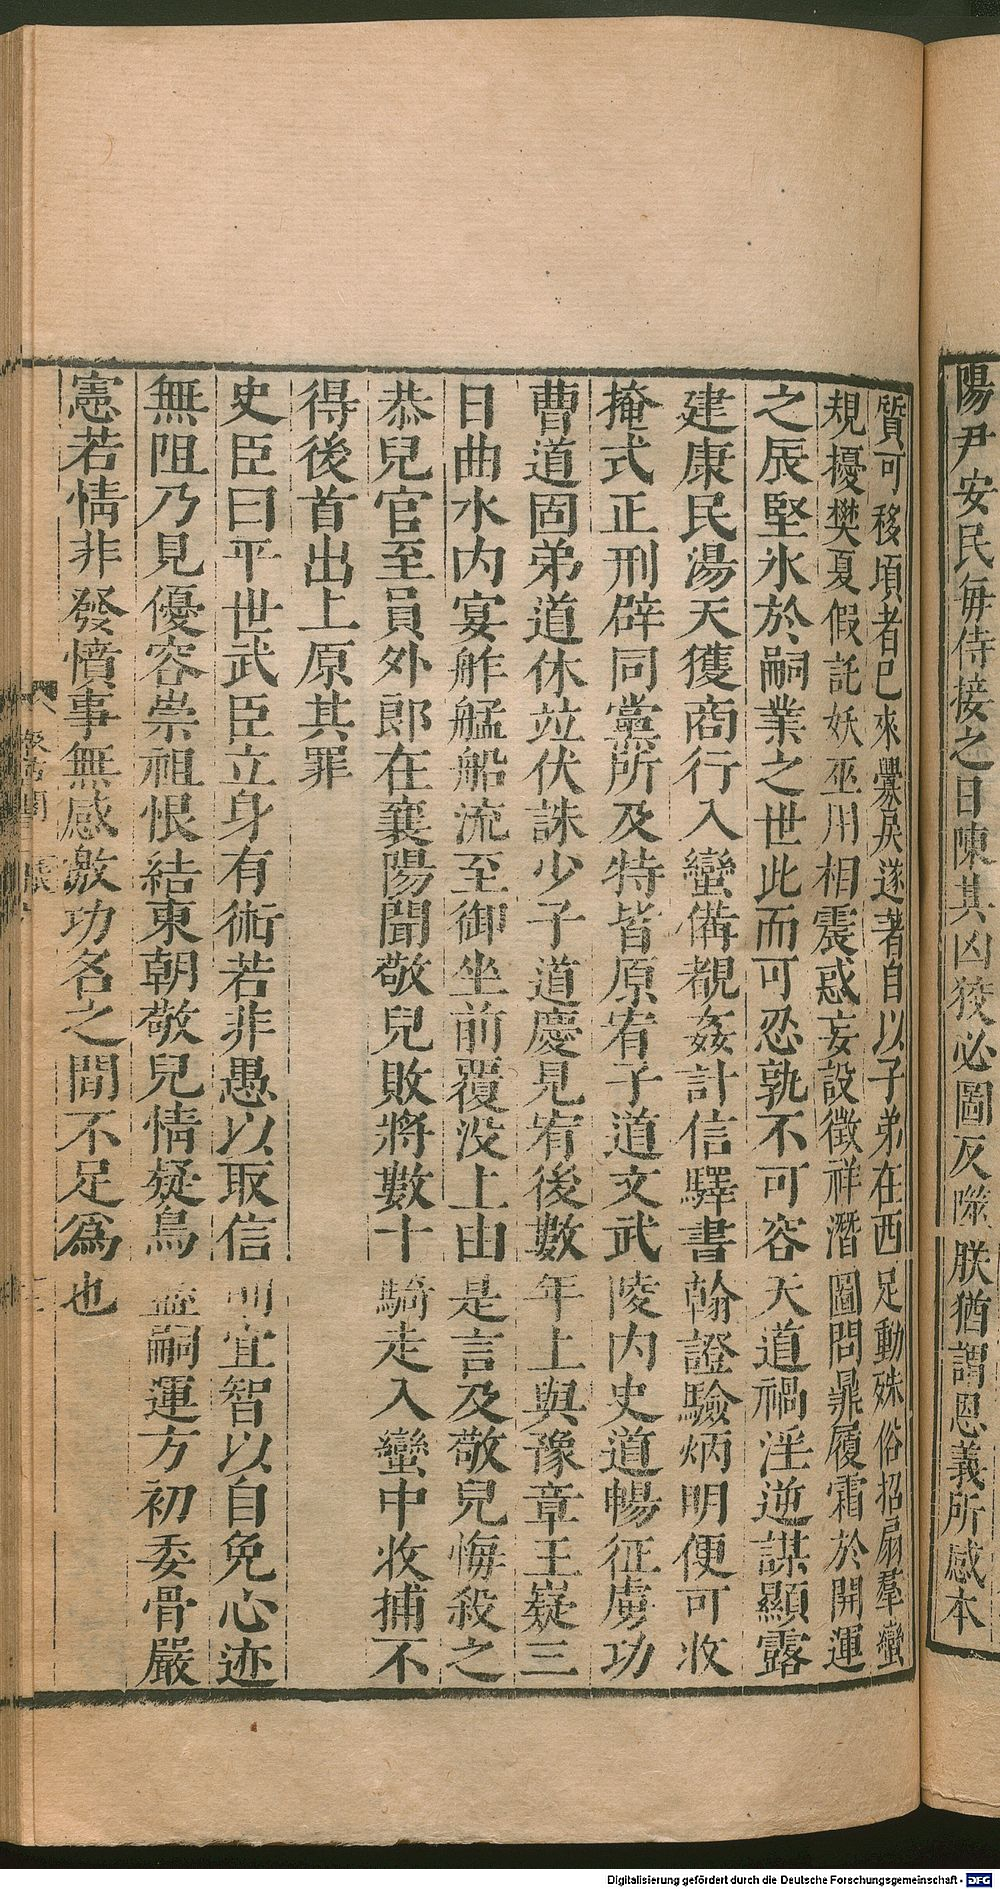 陽尹安民每侍接之日陳其凶狡必圖反噬朕猶謂恩義所感本
質可移頃者已來釁戾遂著自以子弟在西足動殊俗招扇羣蠻
規擾樊夏假託妖巫用相震惑妄設徵祥潛圖問鼎履霜於開運
之辰堅氷於嗣業之世此而可忍孰不可容天道禍淫逆謀顯露
建康民湯天獲商行入蠻備覩姦計信驛書翰證驗炳明便可收
掩式正刑辟同黨所及特皆原宥子道文武陵内史道暢征虜功
曹道固弟道休竝伏誅少子道慶見宥後數年上與豫章王嶷三
日曲水内宴舴艋船流至御坐前覆没上由是言及敬兒悔殺之
恭兒官至員外郎在襄陽聞敬兒敗將數十騎走入蠻中收捕不
得後首出上原其罪
史臣曰平世武臣立身有術若非愚以取信則宜智以自免心迹
無阻乃見優容崇祖恨結東朝敬兒情疑鳥盡嗣運方初委骨嚴
憲若情非發憤事無感激功名之閒不足爲也
Digitalisierung gefördert durch die Deutsche Forschungsgemeinschaft - DFG